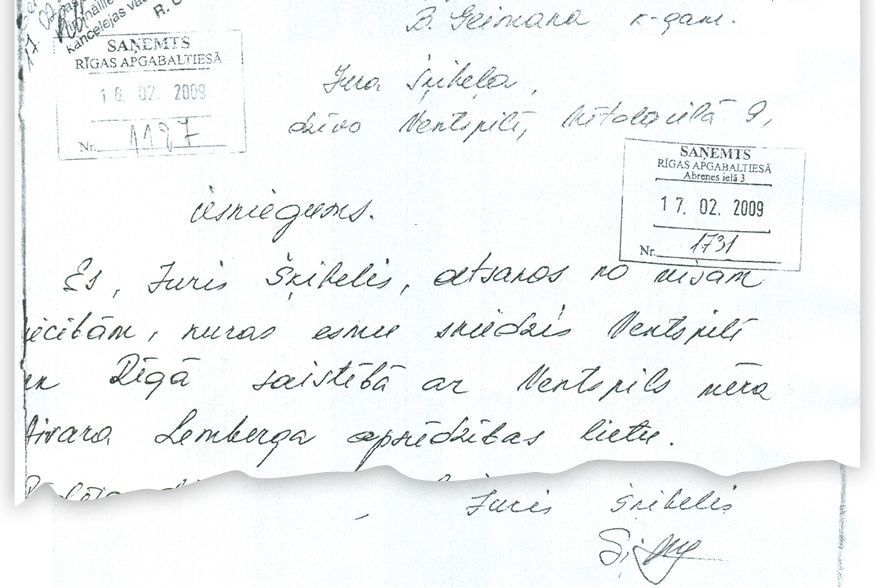 kancelejas
B. Geimana k-gam.
SAŅEMTS
RĪGAS APGABALTIESĀ
16. 02. 2009
Nr. 1187
Jura Šķibeļa,
dzīvo Ventspilī, ielā 9,
SAŅEMTS
RĪGAS APGABALTIESĀ
Abrenes ielā 3
17. 02. 2009
Nr. 1731
iesniegums.
Es, Juris Šķibelis, atsakos no visām
iecībām, kuras esmu sniedzis Ventspilī
un Rīgā saistībā ar Ventspils mēra
Aivara Lemberga apsūdzības lietu.
Juris Šķibelis